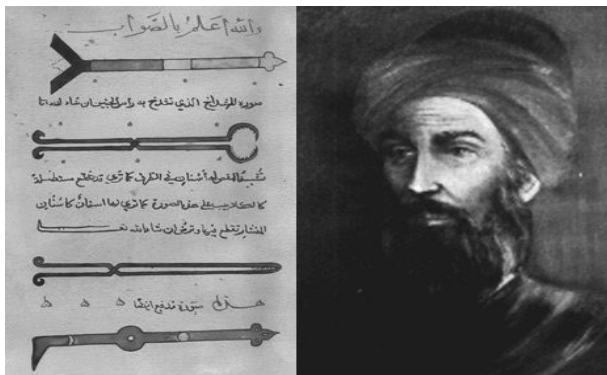 والله اعلم بالصواب
صورة المشداخ الذي تشدخ به راس الجنين ان شاء الله
له أسنان في الطرف كما ترى وقد تصنع مستطيلة
كالكلاليب على هذه الصورة كما ترى لها اسنان كاسنان
المنشار تقطع بها وترض ان شاء الله
صورة مدفع ايضا